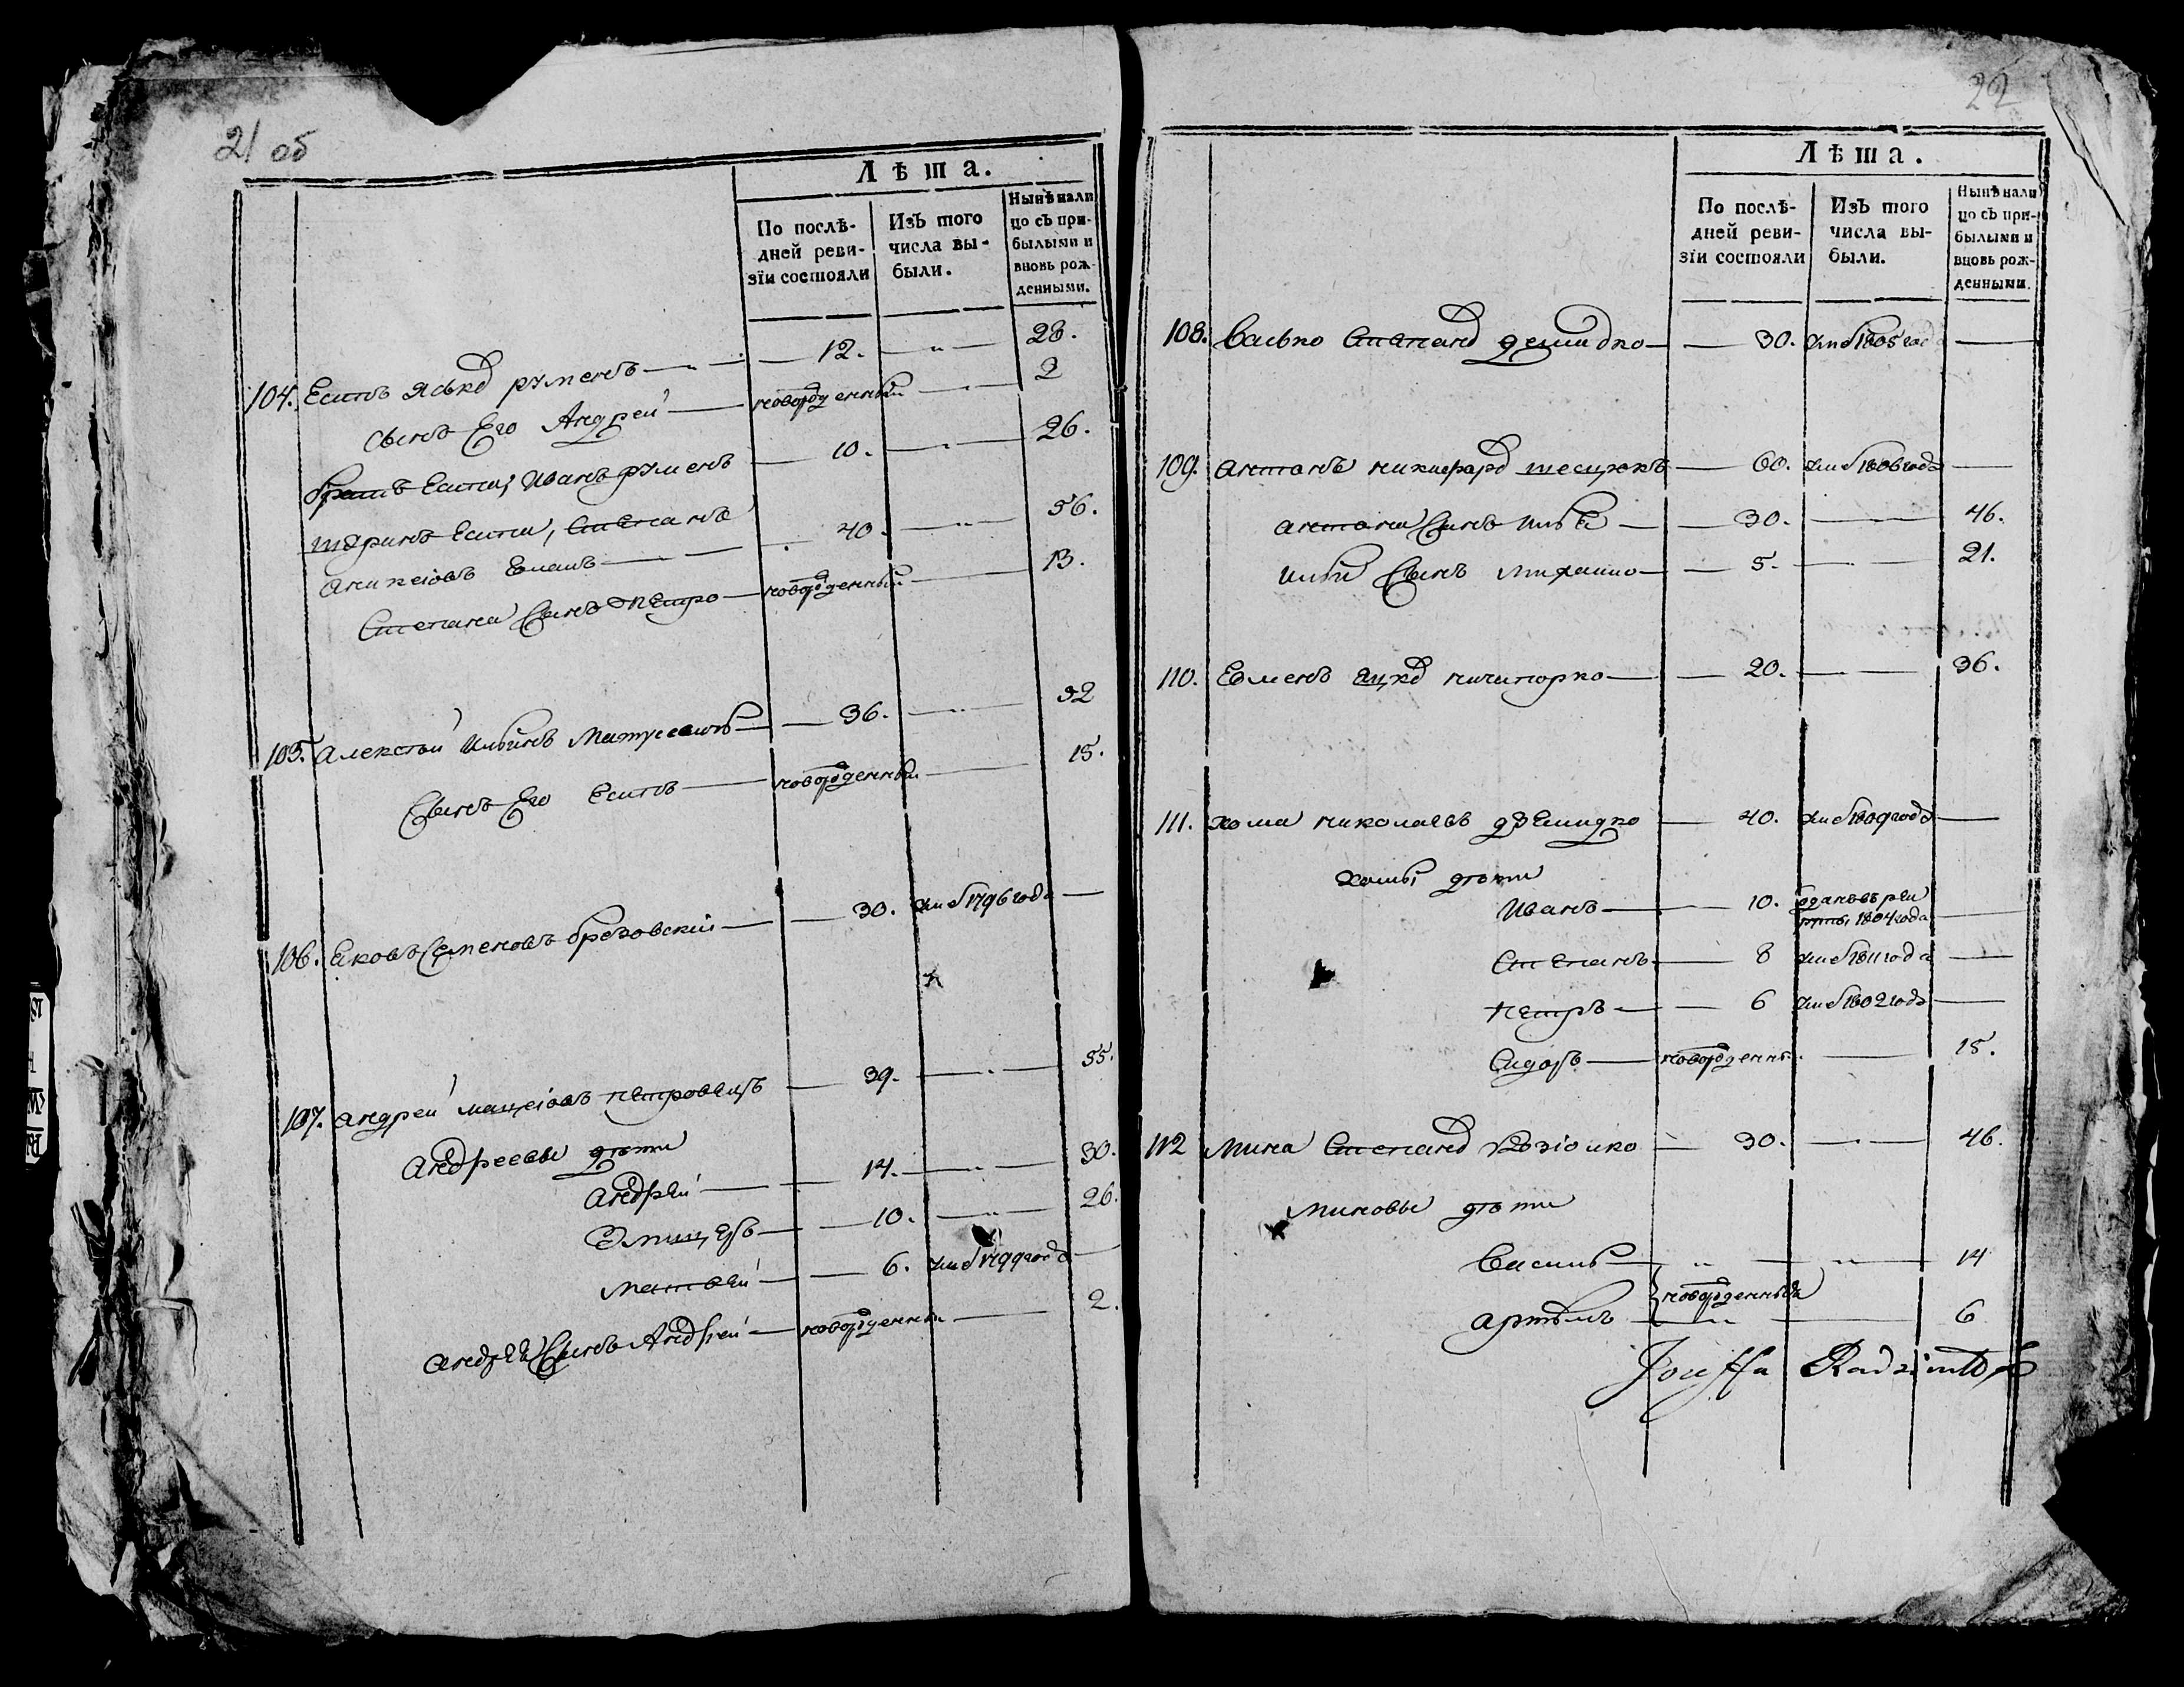 21 об
Лѣта.
По послѣ-
дней реви-
зїи состояли
ИзЪ того
числа вы-
были.
Нынѣ нали
цо съ при-
былыми и
вновь рож-
денными.
104. Есипъ Яськовъ руменъ 12. 28.
сынъ Его Андрей новорожденный 2
братъ Есипа, Иванъ руменъ 10. 26.
Есипа, Степанъ 40. 56.
Степана Сынъ Петро новорожденный 13.
105. Алексѣй Ильинъ 36. 52
Сынъ Его Есипъ новорожденный 15.
106. Яковъ Семеновъ брезовскій 30. умеръ 1796 года
107. Андрей Мацеіовъ Петровецъ 39. 55.
Андреевы дѣти
Андрей 14. 30.
10. 26.
Матвей 6. умеръ 1799 года
Андрея Сынъ Андрей новорожденный 2.
22
Лѣта.
По послѣ-
дней реви-
зїи состояли
ИзЪ того
числа вы-
были.
Нынѣ нали
цо съ при-
былыми и
вновь рож-
денными.
108. Васько Степановъ демидко 30. умеръ 1805 года
109. Антонъ никифоровъ 60. умеръ 1806 года
Антона Сынъ Илья 30. 46.
Ильи Сынъ михайло 5. 21.
110. ничипорко 20. 36.
111. хома николаевъ демидко 40. умеръ 1809 года
Хомы дѣти
Иванъ 10. отданъ въ рек
руты 1804 года
Степанъ 8 умеръ 1811 года
Петръ 6 умеръ 1802 года
Сидоръ новорожденны 15.
112 Мина Степановъ 30. 46.
Миновы дѣти
Василь 14
новорожденные
Артемъ 6